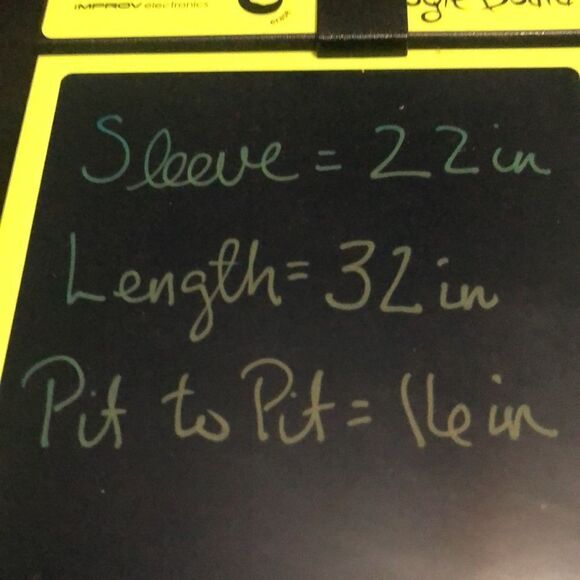 IMPROV electronics
erase
oogie Board
Sleeve = 22 in
Length = 32 in
Pit to Pit = 16 in